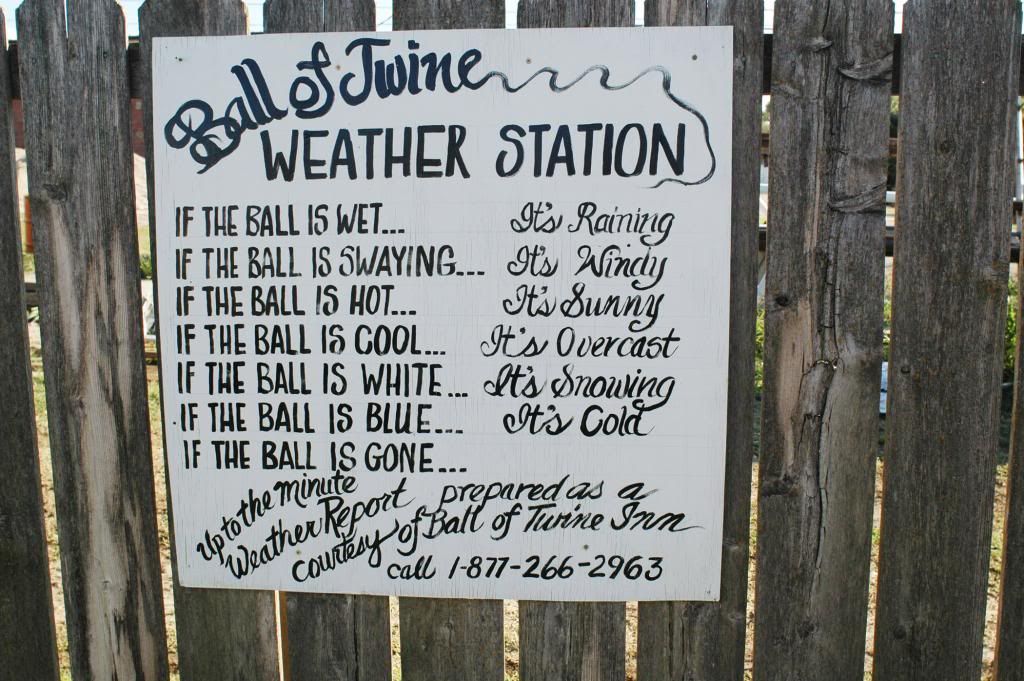 Ball of Twine
WEATHER STATION
IF THE BALL IS WET... It's Raining
IF THE BALL IS SWAYING... It's Windy
IF THE BALL IS HOT... It's Sunny
IF THE BALL IS COOL... It's Overcast
IF THE BALL IS WHITE... It's Snowing
IF THE BALL IS BLUE... It's Cold
IF THE BALL IS GONE...
Up to the minute
Weather Report prepared as a
courtesy of Ball of Twine Inn
call 1-877-266-2963